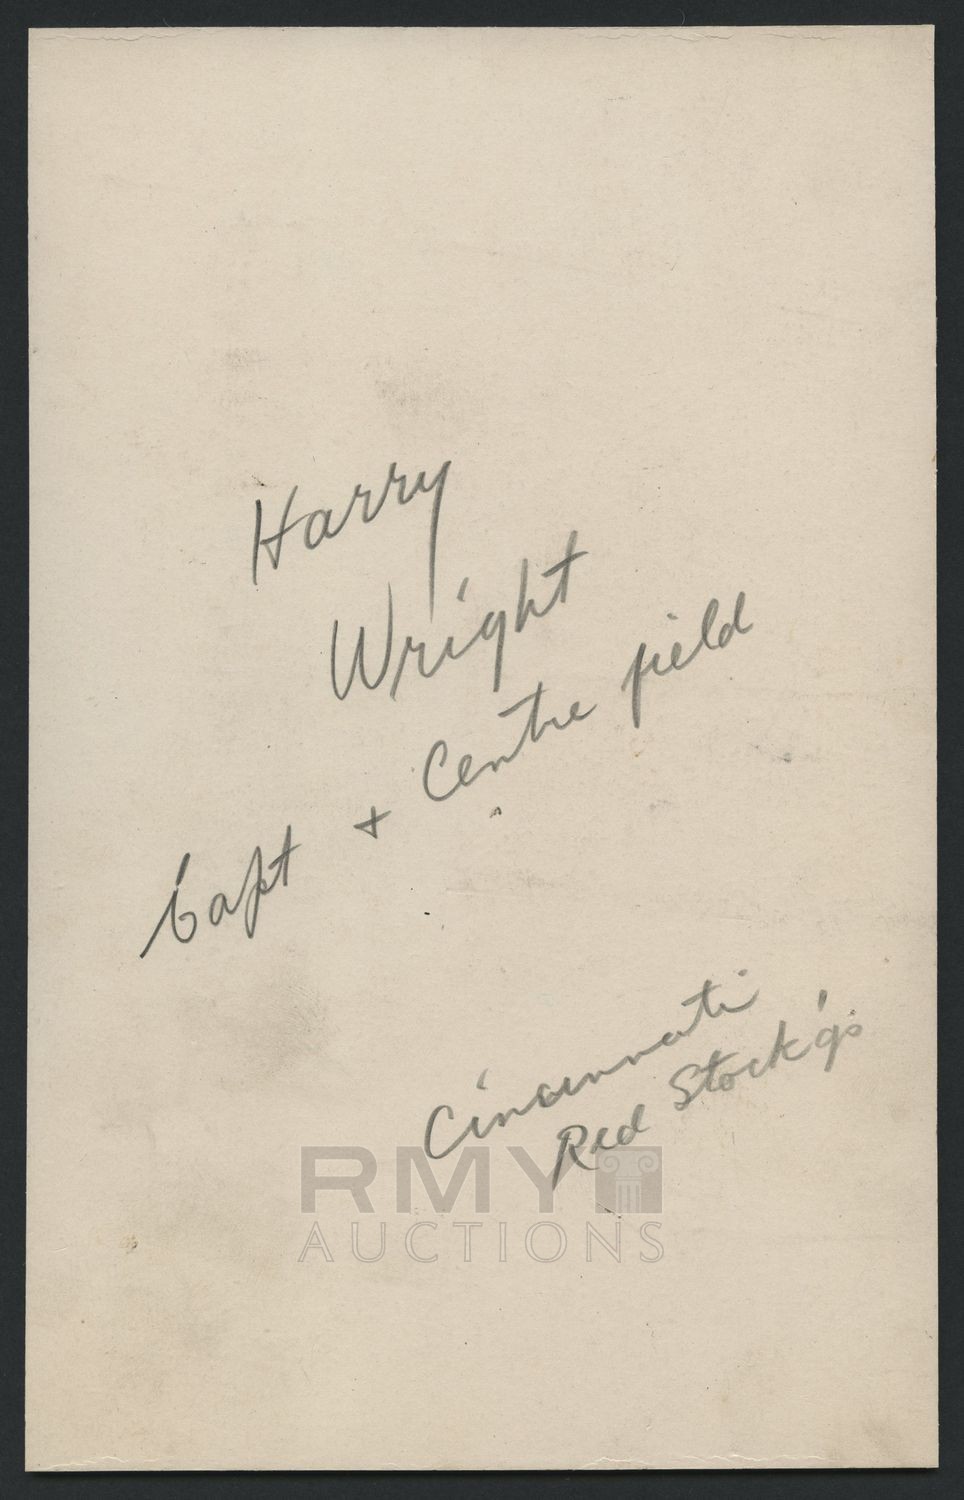 Harry
Wright
Capt + Centre field
Cincinnati
Red Stock'gs
RMY
AUCTIONS